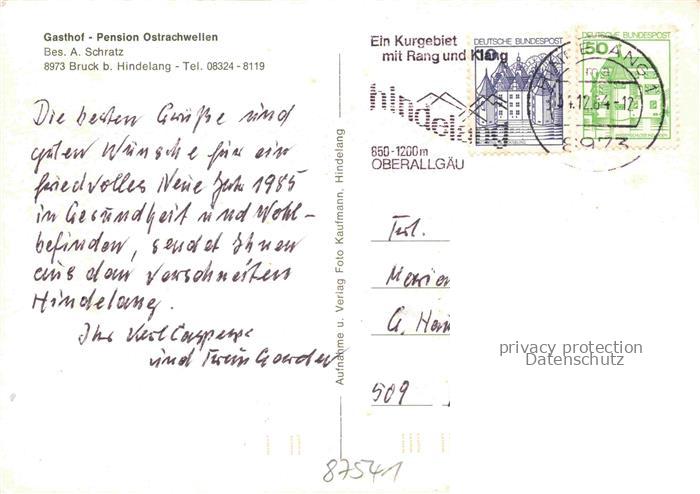 Gasthof - Pension Ostrachwellen
Bes. A. Schratz
8973 Bruck b. Hindelang - Tel. 08324 - 8119
Die besten Grüße und
guten Wünsche für ein
friedvolles Neue Jahr 1985
in Gesundheit und Wohl-
befinden, sendet Ihnen
aus dem verschneiten
Hindelang.
Ihr Karl
und Frau
Aufnahme u. Verlag Foto Kaufmann, Hindelang
Ein Kurgebiet
mit Rang und Klang
hindelang
850-1200m
OBERALLGÄU
DEUTSCHE BUNDESPOST
DEUTSCHE BUNDESPOST
50
HINDELANG 1
ma
12.84-12
8973
Frl.
Maria
G.
509
privacy protection
Datenschutz
87541